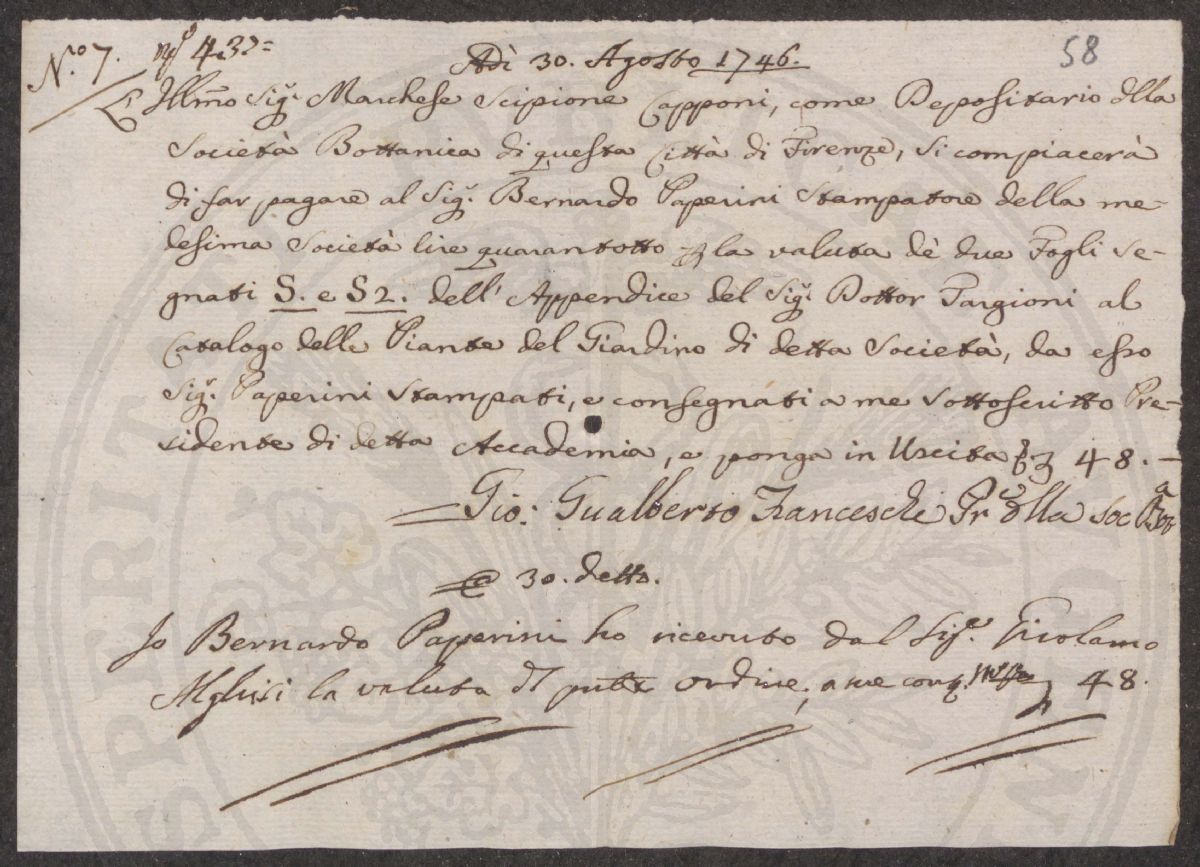 N.º 7. 43.
Adì 30. Agosto 1746.
58
L' Illmo Sig.r Marchese Scipione Capponi, come Depositario dlla
Società Bottanica di questa Città di Firenze, si compiacerà
di far pagare al Sig.r Bernardo Paperini Stampatore della me-
desima Società lire quarantotto p la valuta dè due Fogli se-
gnati S. e S2. dell' Appendice del Sig.r Dottor Targioni al
Catalogo delle Piante del Giardino di detta Società, da esso
Sig.r Paperini stampati, e consegnati a me sottoscritto Pre-
sidente di detta Accademia, e ponga in Uscita 48. —
Gio: Gualberto Franceschi Pr.e dlla Soc.a Bot
30. detto.
Io Bernardo Paperini ho ricevuto dal Sig.r Girolamo
Alghisi la valuta dl ordine, a me 48.